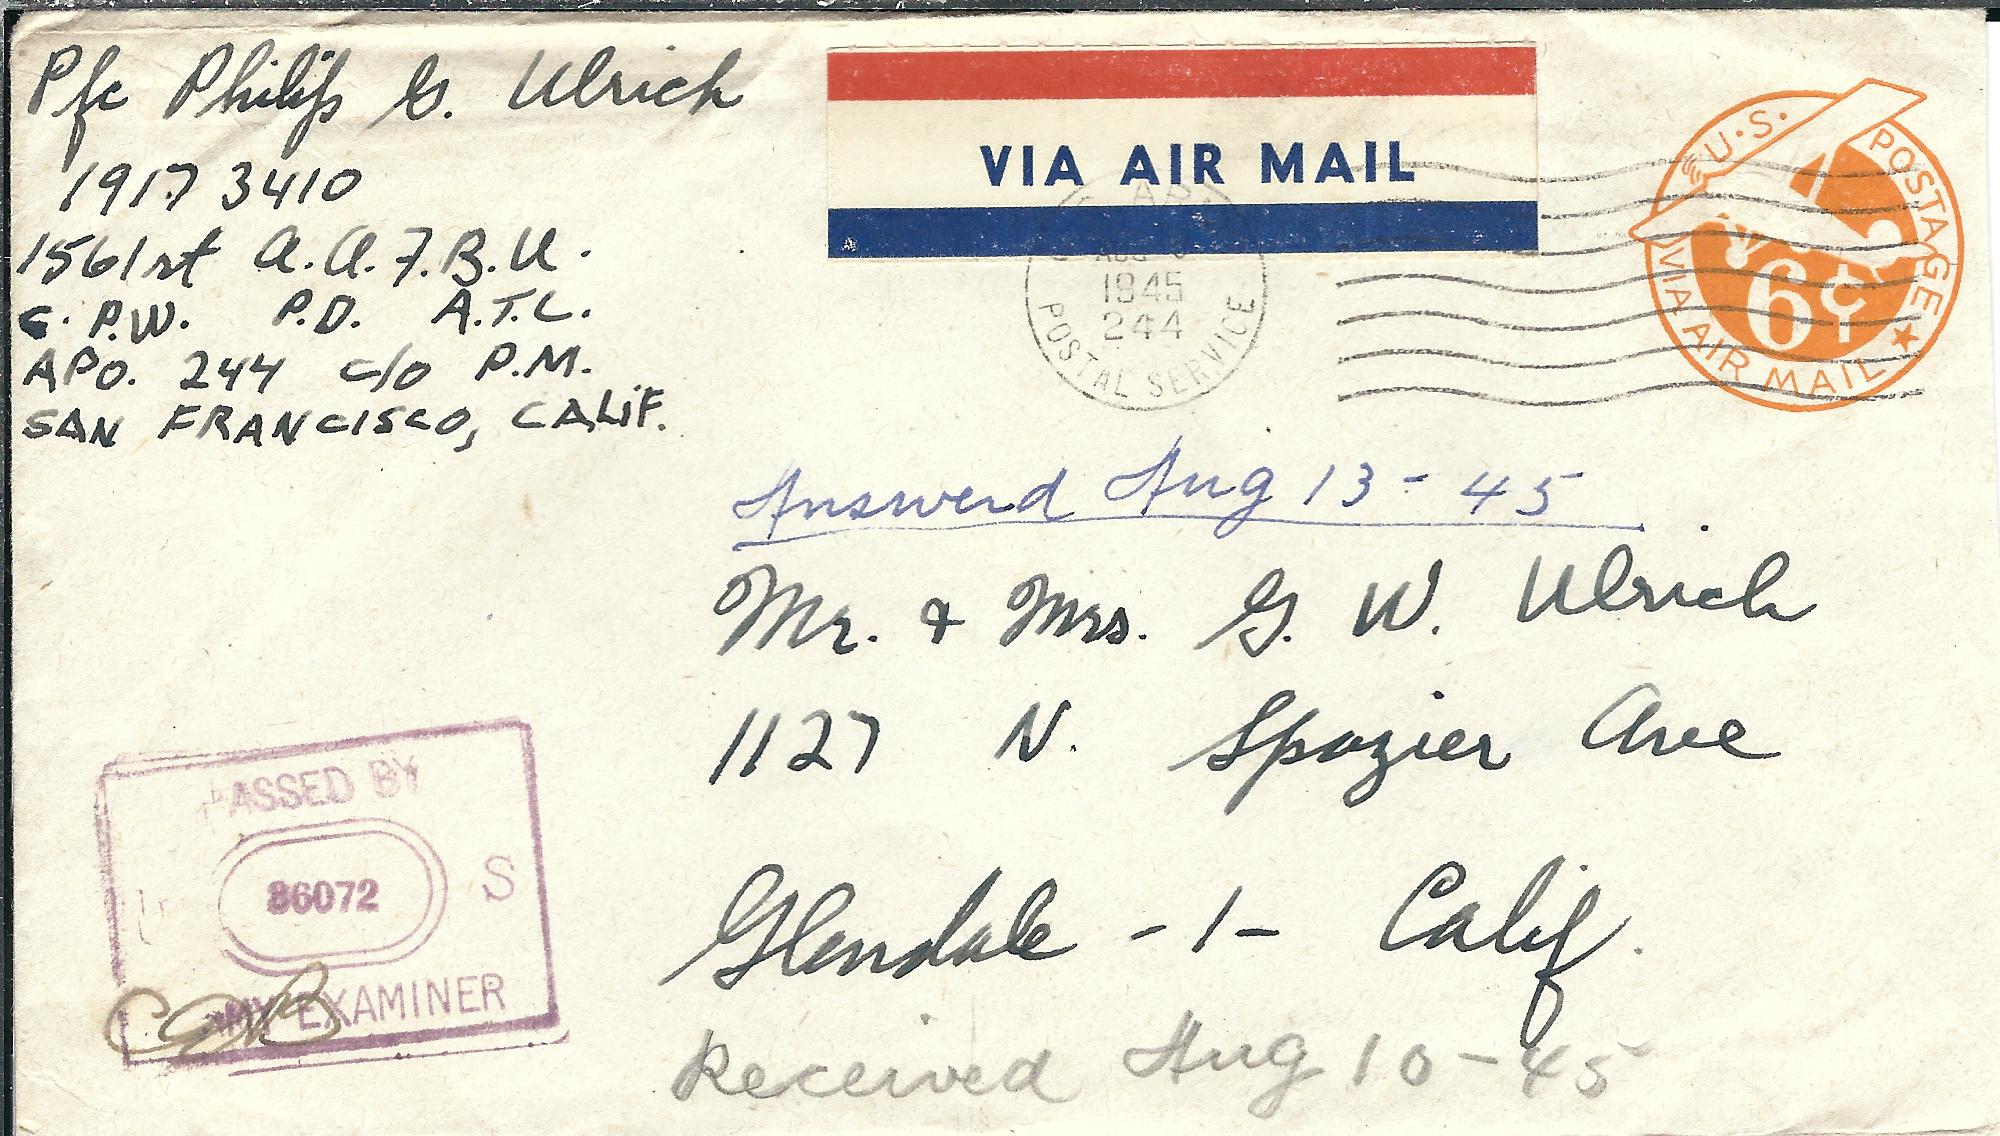 Pfc Philip G. Ulrich
1917 3410
1561st A.A.F.B.U.
C.P.W. P.D. A.T.C.
APO. 244 c/o P.M.
SAN FRANCISCO, CALIF.
VIA AIR MAIL
U.S. POSTAGE
6¢
VIA AIR MAIL
AUG
1945
244
POSTAL SERVICE
Answerd Aug 13-45
Mr. & Mrs. G. W. Ulrich
1127 N. Spazier Ave
Glendale -1- Calif.
Received Aug 10-45
PASSED BY
86072
S
EXAMINER